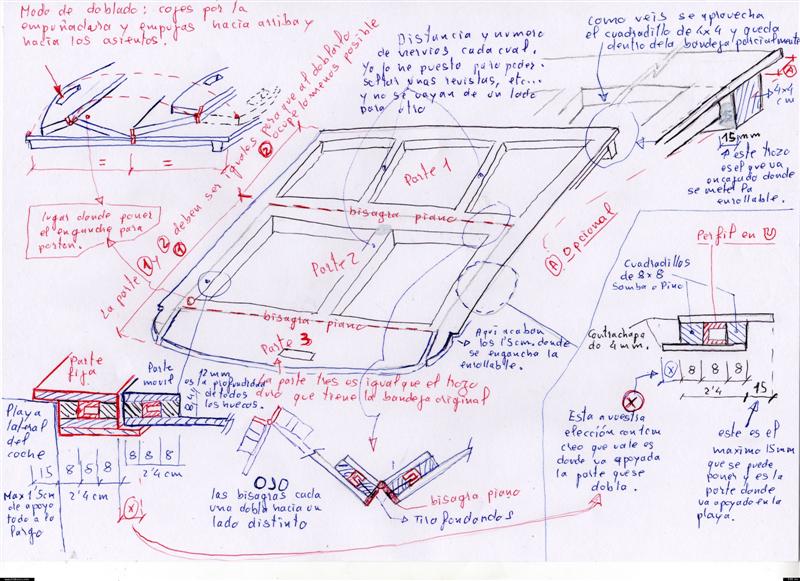 Modo de doblado: coges por la
empuñadura y empujas hacia arriba y
hacia los asientos.
Distancia y numero
de nervios cada cual.
Yo lo he puesto para poder
soltar unas revistas, etc...
y no se vayan de un lado
para otro
como veis se aprovecha
el cuadradillo de 4x4 y queda
dentro de la bandeja parcialmente
A
4x4
cm
15 mm
este trozo
es el que va
encajado donde
se mete la
enrollable.
= =
lugar donde poner
el enganche para
porton.
La parte 1 y 2 deben ser iguales para que al doblarlo
2 1 ocupe lo menos posible
Parte 1
bisagra piano
Parte 2
bisagra piano
Parte 3
A Opcional
Aqui acaban
los 1'5cm. donde
se engancha la
enrollable.
La parte tres es igual que el trozo
duro que tiene la bandeja original
Perfil en U
Cuadradillos
de 8x8
Samba o Pino
Contrachapa
de 4 mm.
X 8 8 8
2'4 15
X
Esta a vuestra
elección con 1cm
creo que vale es
donde va apoyada
la parte que se
dobla.
este es el
maximo 15mm
que se puede
poner y es la
parte donde
va apoyado en la
playa.
Parte
fija
Parte
movil
12 mm
es la profundidad
de todos
los huecos.
8,4y
Playa
lateral
del
coche
15 8 8 8
8 8 8
2'4 cm
2'4 cm
Max 1'5cm
de apoyo
todo a lo
largo
X
OJO
las bisagras cada
una dobla hacia un
lado distinto
bisagra piano
Tirafondos